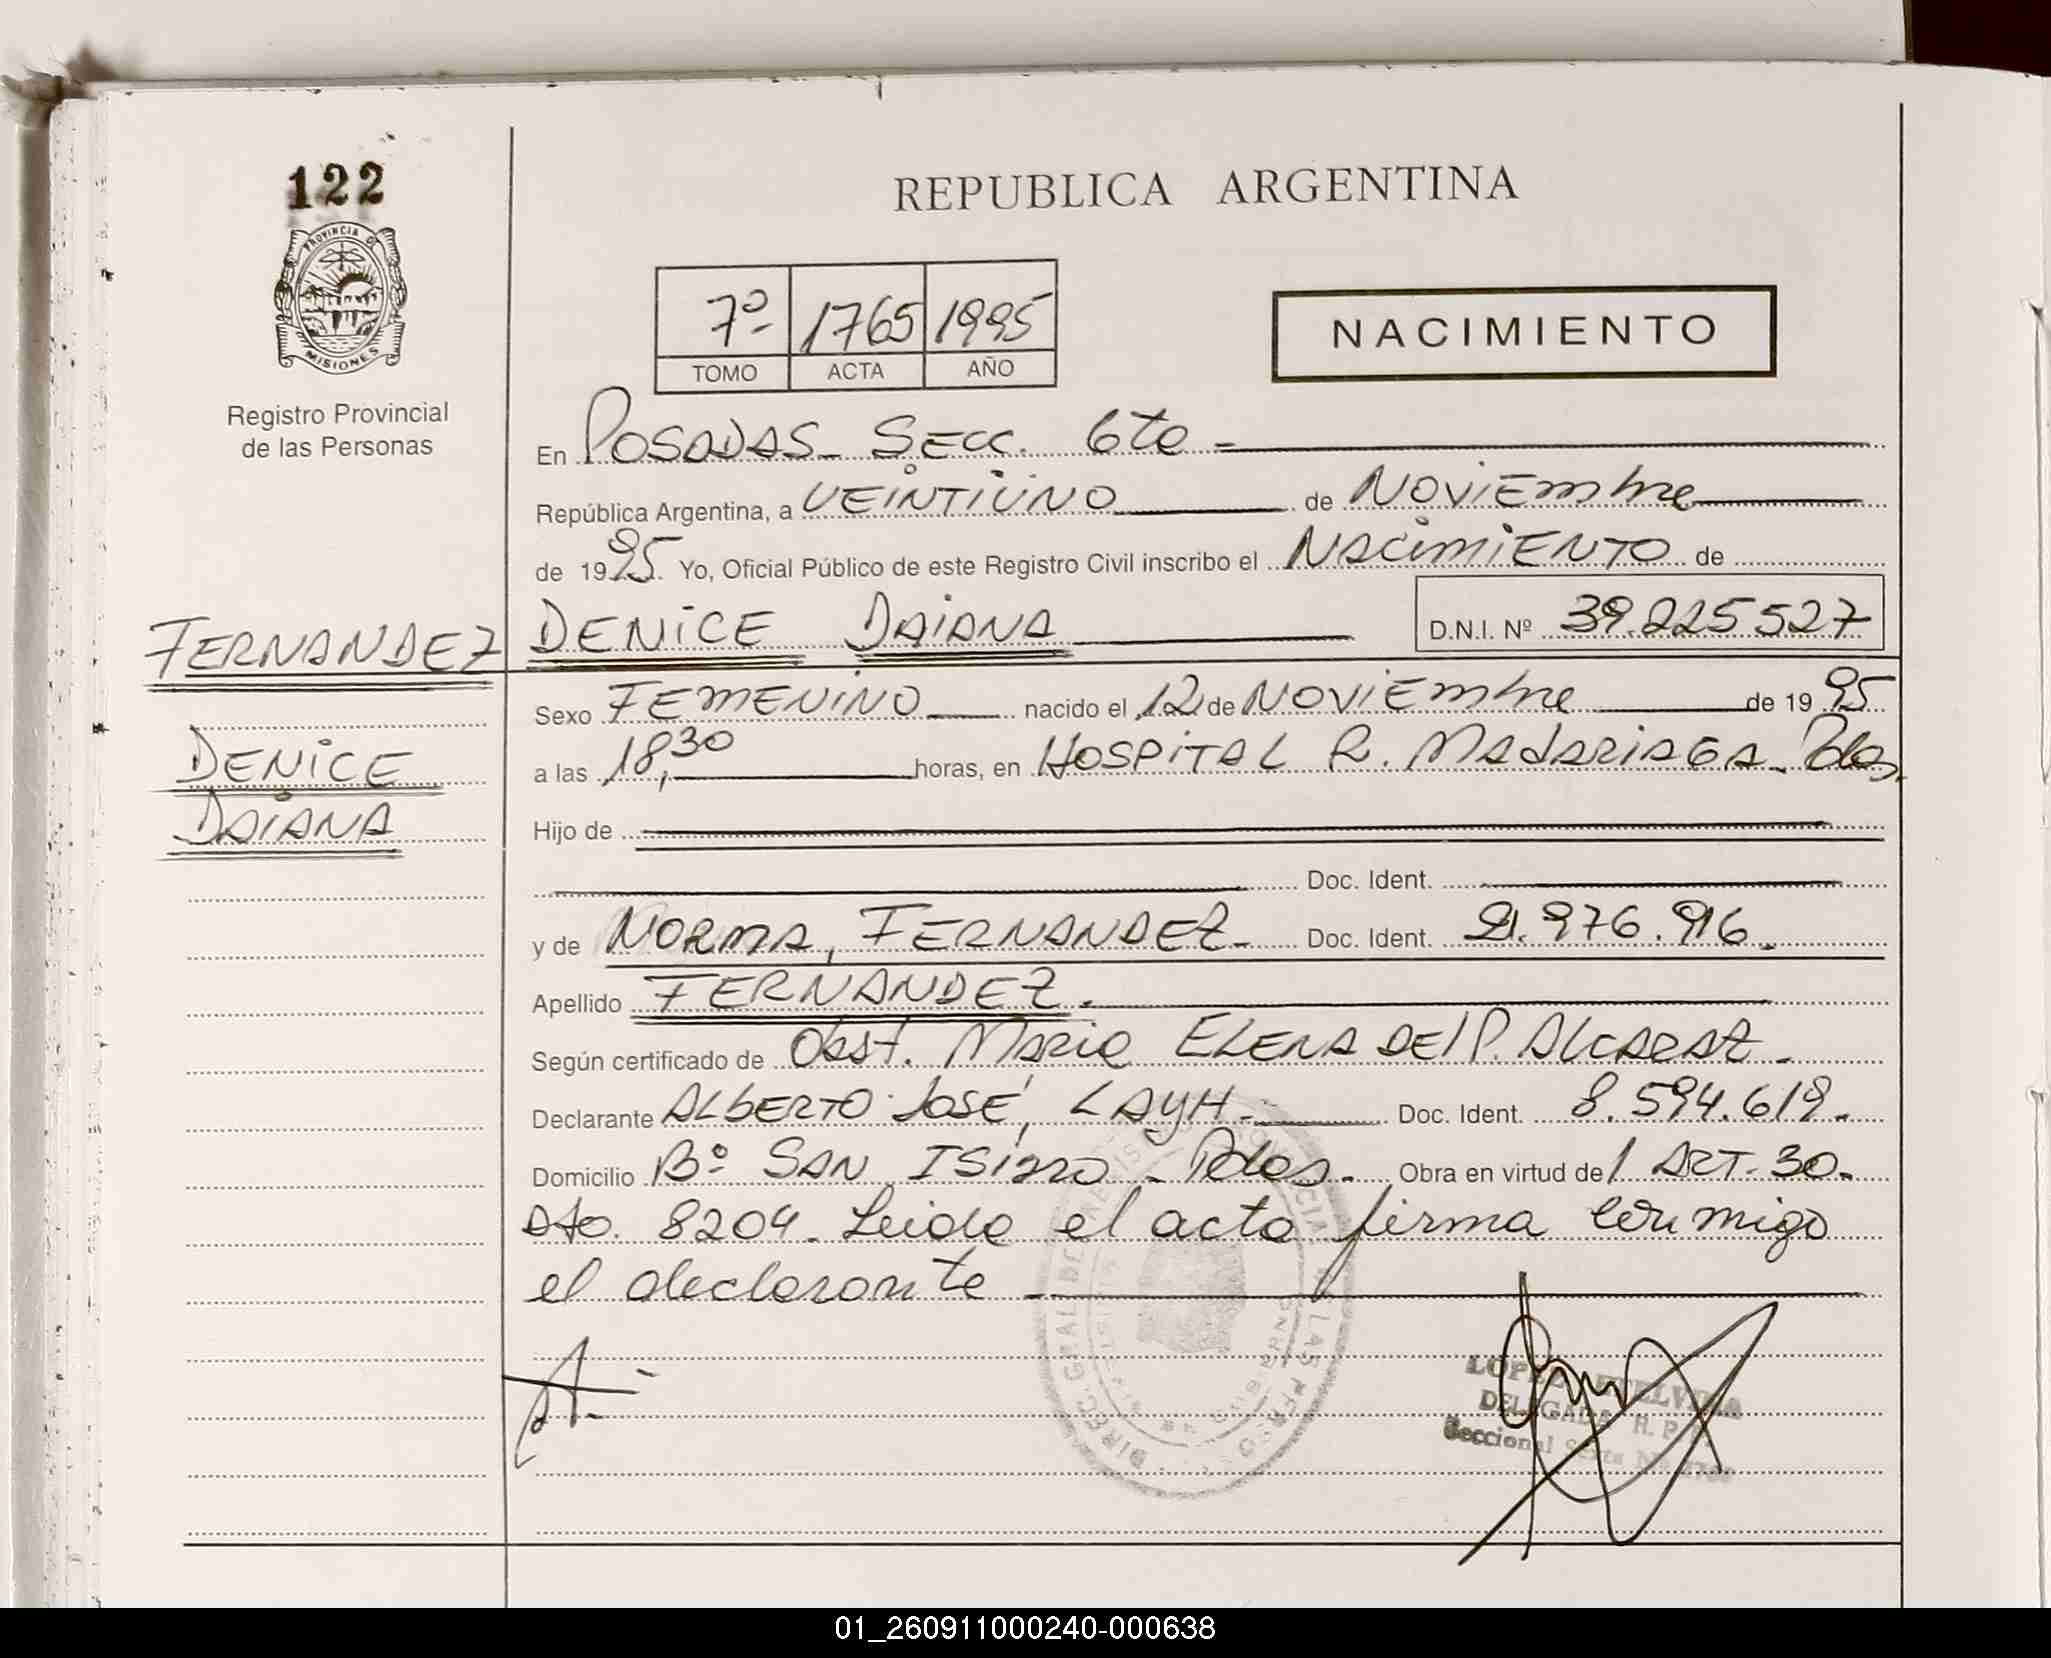 122
PROVINCIA DE
MISIONES
Registro Provincial
de las Personas
REPUBLICA ARGENTINA
7º 1765 1995
TOMO ACTA AÑO
NACIMIENTO
En POSADAS - SECC. 6ta -
República Argentina, a VEINTIUNO de NOVIEmbre
de 1995. Yo, Oficial Público de este Registro Civil inscribo el NACimiENTO de
FERNANDEZ DENiCE DAiANA D.N.I. Nº 39.225.527
DENiCE
DAiANA
Sexo FEMENiNO nacido el 12 de NOViEmbre de 1995
a las 18,30 horas, en HOSPiTAL R. MADARIAGA - Pdas.
Hijo de
Doc. Ident.
y de NORMA, FERNANDEZ - Doc. Ident. 21.976.916.
Apellido FERNANDEZ.
Según certificado de Obst. Maria ELENA DEl P. ALCARAZ -
Declarante ALbERTO JOSÉ, LAYH - Doc. Ident. 8.594.619.
Domicilio Bº SAN ISiDRO - Pdas. Obra en virtud de l ART. 30.
Dto. 8204. Leida el acta firma conmigo
el declarante
DIREC. GRAL DE PROVINCIAL DE LAS PERSO
LOPEZ ETELVINA
DELEGADA R. P.
Seccional Sexta
01_260911000240-000638